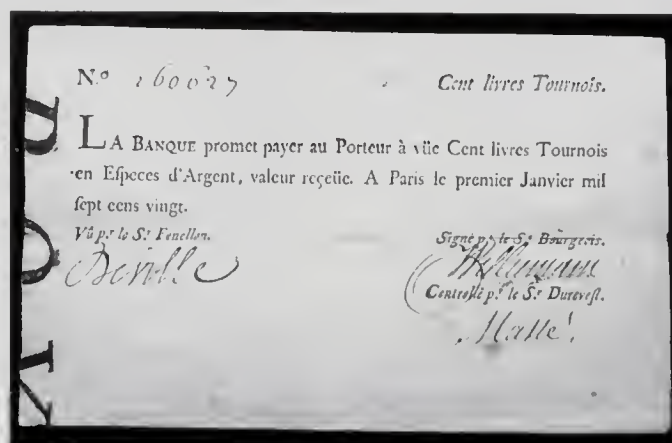 N.o 160027 Cent livres Tournois.
LA BANQUE promet payer au Porteur à vüe Cent livres Tournois
en Eſpeces d'Argent, valeur reçeüe. A Paris le premier Janvier mil
ſept cens vingt.
Vû p.r le S.r Fenellon. Signé p.r le S.r Bourgeois.
Deville
Controllé p.r le S.r Dureveſt.